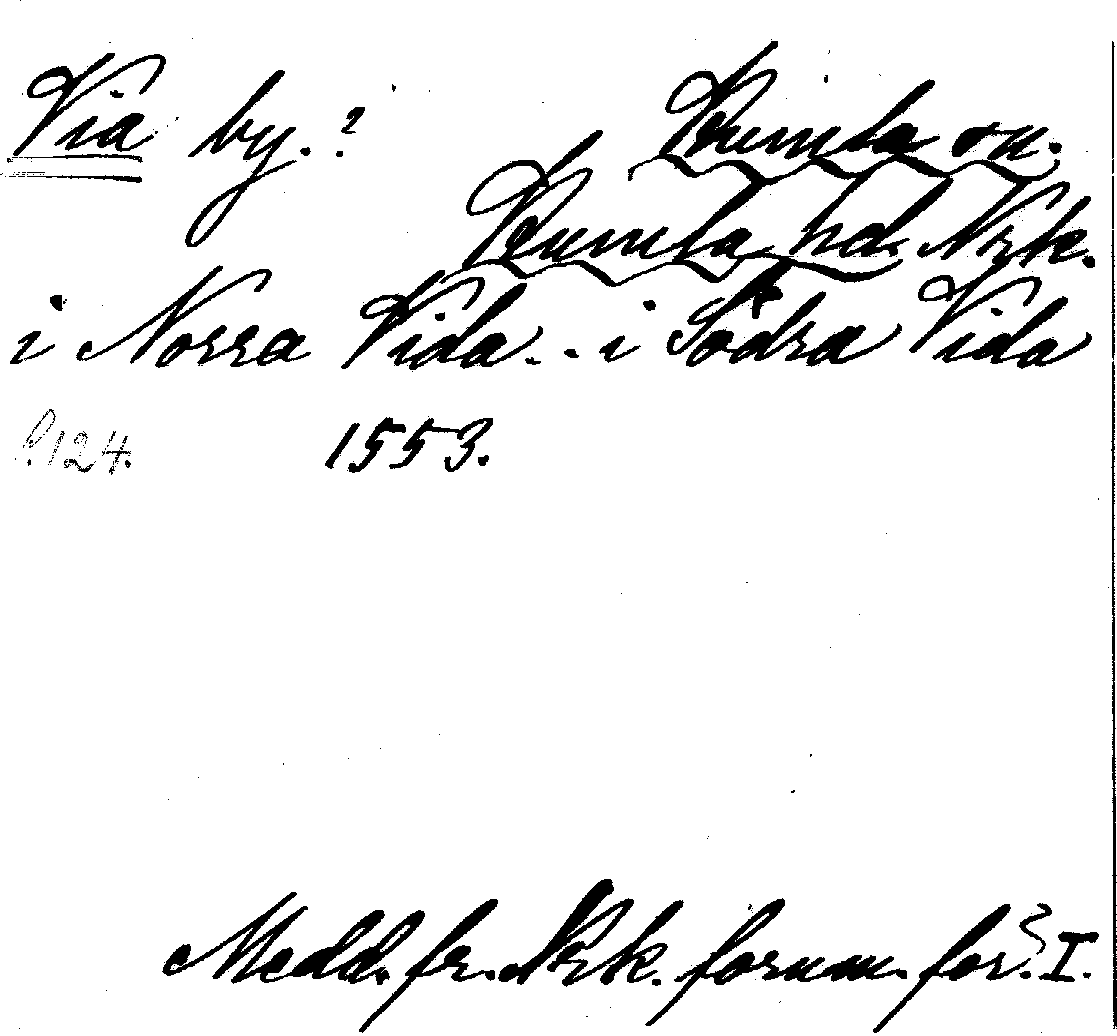 Via by.? Kumla sn.
Kumla hd. Nrk.
i Norra Vida.. i Södra Vida
s. 124. 1553.
Medd. fr. Nrk. fornm. för. I.